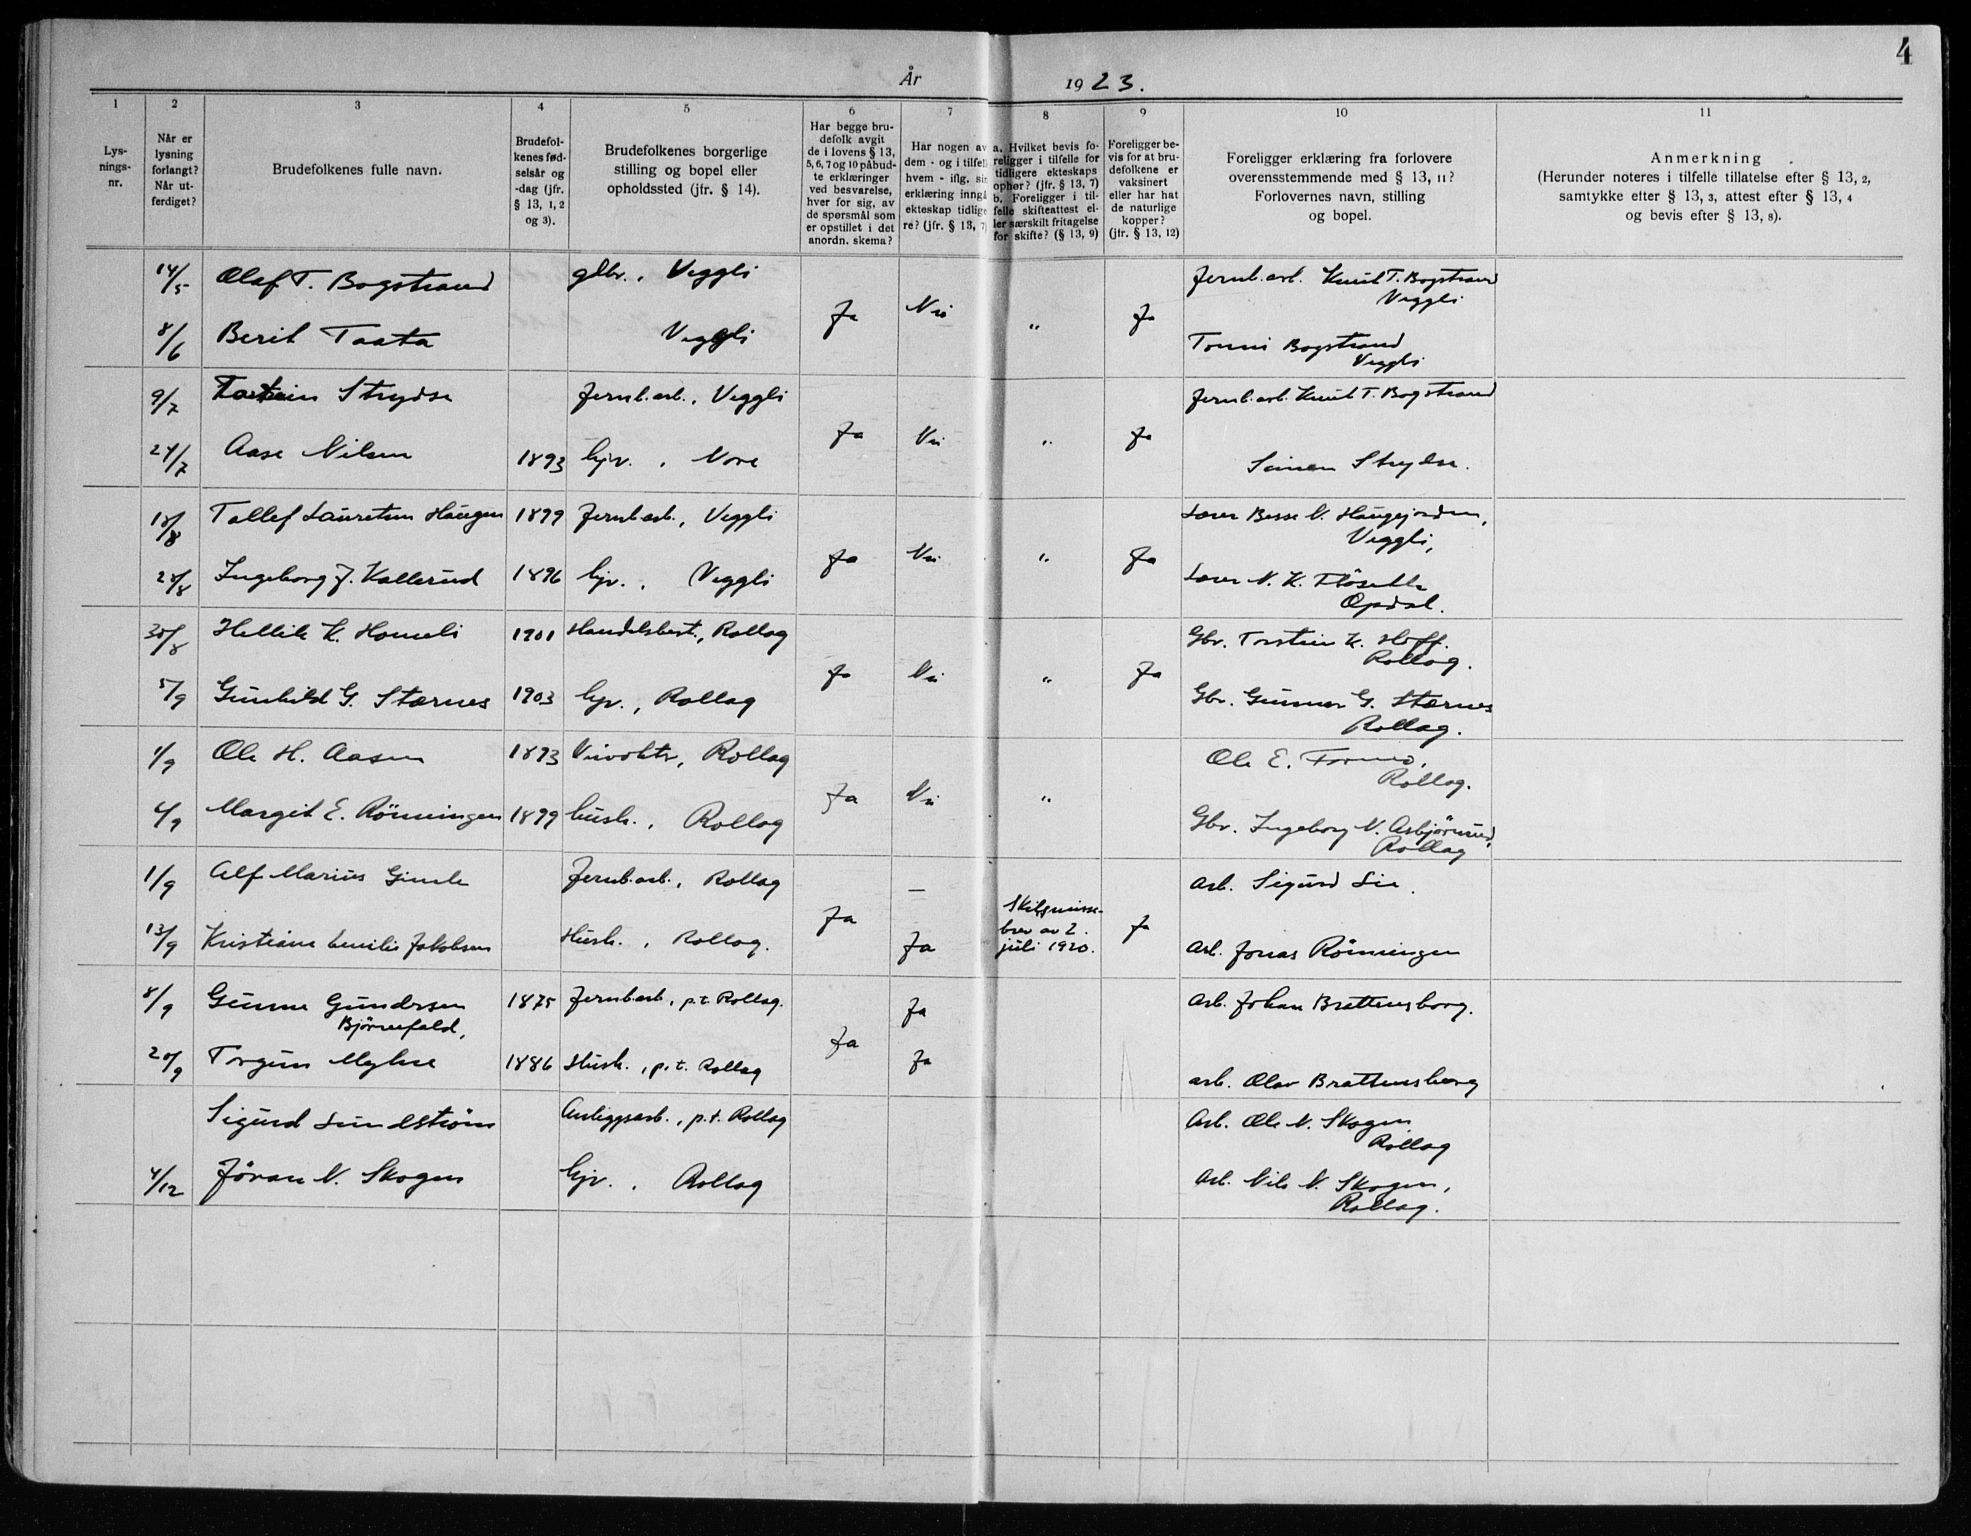 4
År 1923.
1 2 3 4 5 6 7 8 9 10 11
Lys-
nings-
nr.
Når er
lysning
forlangt?
Når ut-
ferdiget?
Brudefolkenes fulle navn.
Brudefol-
kenes fød-
selsår og
-dag (jfr.
§ 13, 1, 2
og 3).
Brudefolkenes borgerlige
stilling og bopel eller
opholdssted (jfr. § 14).
Har begge bru-
defolk avgit
de i lovens § 13,
5, 6, 7 og 10 påbud-
te erklæringer
ved besvarelse,
hver for sig, av
de spørsmål som
er opstillet i det
anordn. skema?
Har nogen av
dem - og i tilfell
hvem - iflg. si
erklæring inngå
ekteskap tidlige
re? (jfr. § 13, 7)
a. Hvilket bevis fo-
religger i tilfelle for
tidligere ekteskaps
ophør? (jfr. § 13, 7)
b. Foreligger i til-
felle skifteattest el-
ler særskilt fritagelse
for skifte? (§ 13, 9)
Foreligger be-
vis for at bru-
defolkene er
vaksinert
eller har hat
de naturlige
kopper?
(jfr. § 13, 12)
Foreligger erklæring fra forlovere
overensstemmende med § 13, 11?
Forlovernes navn, stilling
og bopel.
Anmerkning
(Herunder noteres i tilfelle tillatelse efter § 13, 2,
samtykke efter § 13, 3, attest efter § 13, 4
og bevis efter § 13, 8).
14/5 Olaf T. Bogstrand gbr., Veggli Jernb.arb. Knut T. Bogstrand
Veggli
Ja Nei " Ja
8/6 Berit Taata Veggli Tonni Bogstrand
Veggli
9/7 Strydse Jernb.arb., Veggli Jernb.arb. Knut T. Bogstrand
Ja Nei " Ja
24/7 Aase Nilsen 1893 hjv., Nore Simen Strydse.
18/8 Tollef Lauretsen Haugen 1899 Jernb.arb., Veggli Lærer Besse N. Haugejorden,
Veggli,
Ja Nei " Ja
28/8 Ingeborg J. Kallerud 1896 hjv., Veggli Lærer N. K.
Opdal.
30/8 Hellik K. 1901 Handelsbest., Rollag Gbr. Torstein K. Hoff.
Rollag.
Ja Nei " Ja
5/9 Gunhild G. Stærnes 1903 hjv., Rollag Gbr. Gunnar G. Stærnes
Rollag.
1/9 Ole H. Aasen 1893 Rollag Ole E.
Rollag.
Ja Nei "
4/9 Margit E. Rönningen 1899 hush., Rollag Gbr. Ingeborg N. Asbjörnrud,
Rollag
1/9 Alf Marius Gimle Jernb.arb., Rollag — Arb. Sigurd Lie.
Ja Skilsmisse-
brev av 2.
juli 1920. Ja
13/9 Kristiane Emilie Jakobsen Hush., Rollag. Ja Arb. Jonas Rönningen
8/9 Gunnar Gundersen 1875 Jernb.arb., p.t. Rollag. Ja Arb. Johan Brattensborg.
Björnefald,
Ja
20/9 Torgun Myhre 1886 Hush., p.t. Rollag Ja arb. Olav Brattensberg
Sigurd Lundström Anleggsarb., p.t. Rollag Arb. Ole N. Skogen
Rollag
4/12 Jöran N. Skogen hjv., Rollag Arb. Nils N. Skogen,
Rollag.